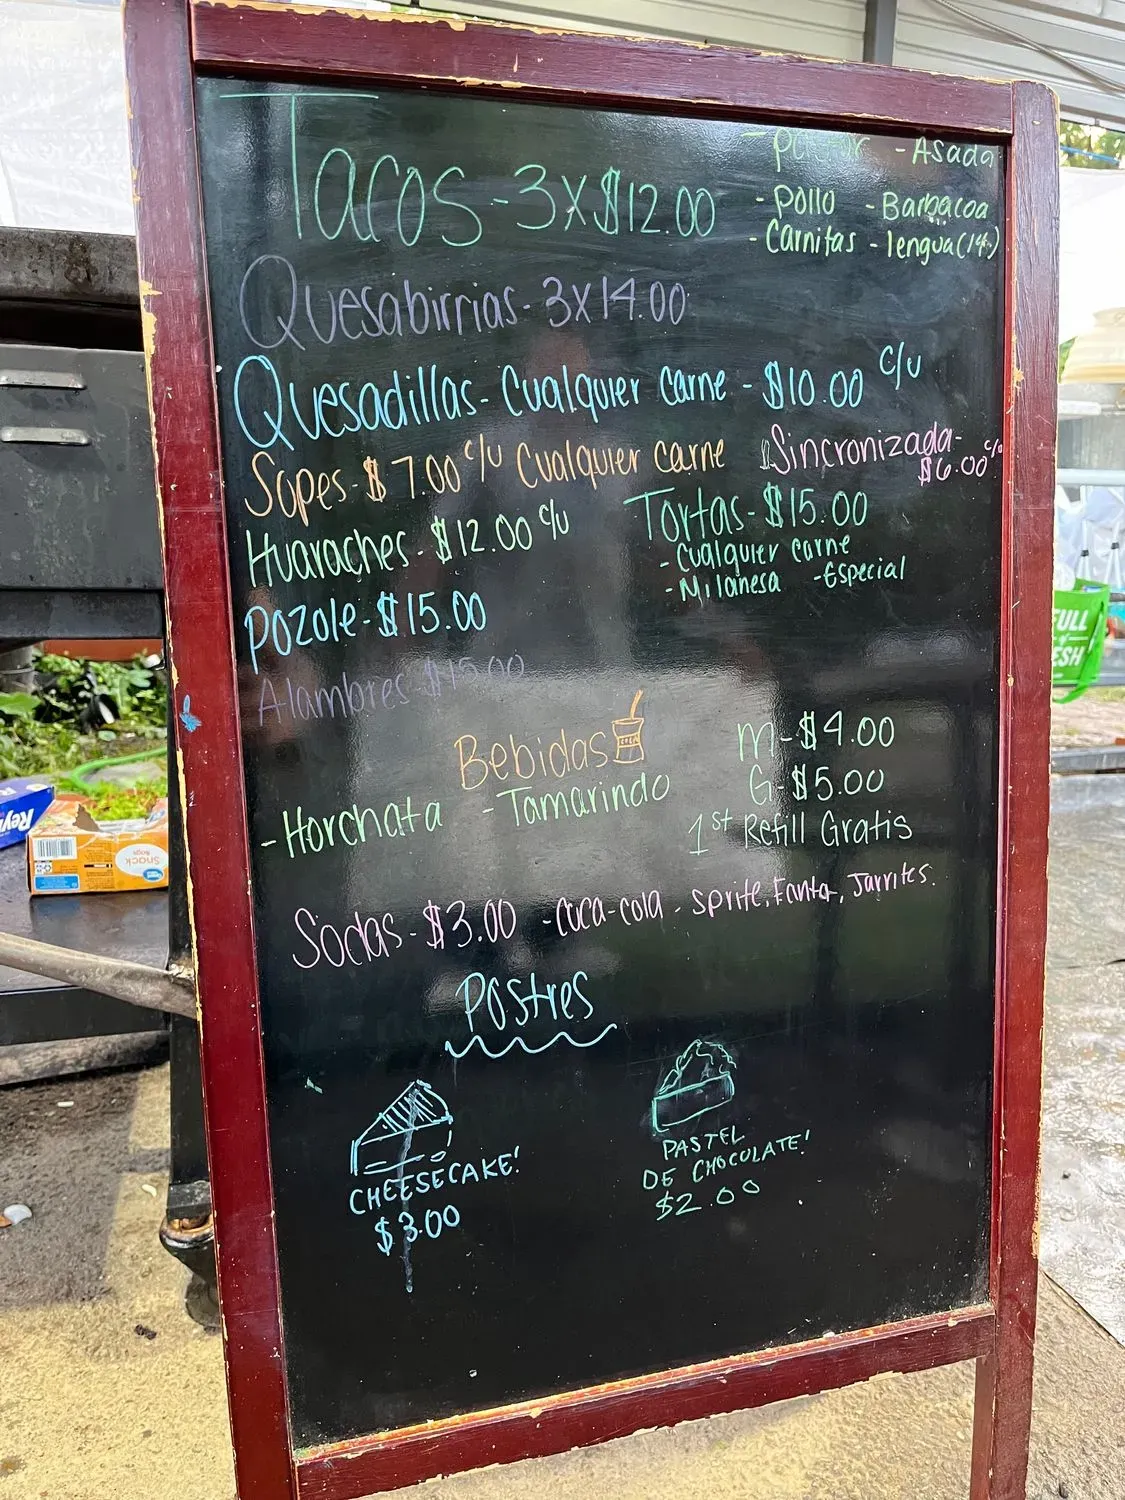 Tacos - 3x$12.00
- pastor - Asada
- pollo - Barbacoa
- Carnitas - lengua (14)
Quesabirrias - 3x14.00
Quesadillas - Cualquier carne - $10.00 c/u
Sopes - $7.00 c/u Cualquier carne
Sincronizada -
$6.00 c/u
Huaraches - $12.00 c/u
Tortas - $15.00
- Cualquier carne
- Milanesa - Especial
Pozole - $15.00
Alambres - $15.00
Bebidas
- Horchata - Tamarindo
M - $4.00
G - $5.00
1st Refill Gratis
Sodas - $3.00 - Coca-cola - sprite, Fanta, Jarrites.
Postres
CHEESECAKE!
$3.00
PASTEL
DE CHOCOLATE!
$2.00
FULL
of
ESH
Rey
Snack